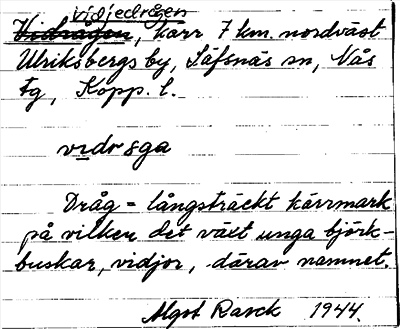 Vidjedrågen
Vidrågen, kärr 7 km. nordväst
Ulriksbergs by, Säfsnäs sn, Nås
tg, Kopp. l.
Dråg = långsträckt kärrmark
på vilken det växt unga björk-
buskar, vidjor, därav namnet.
Algot Rasck 1944.